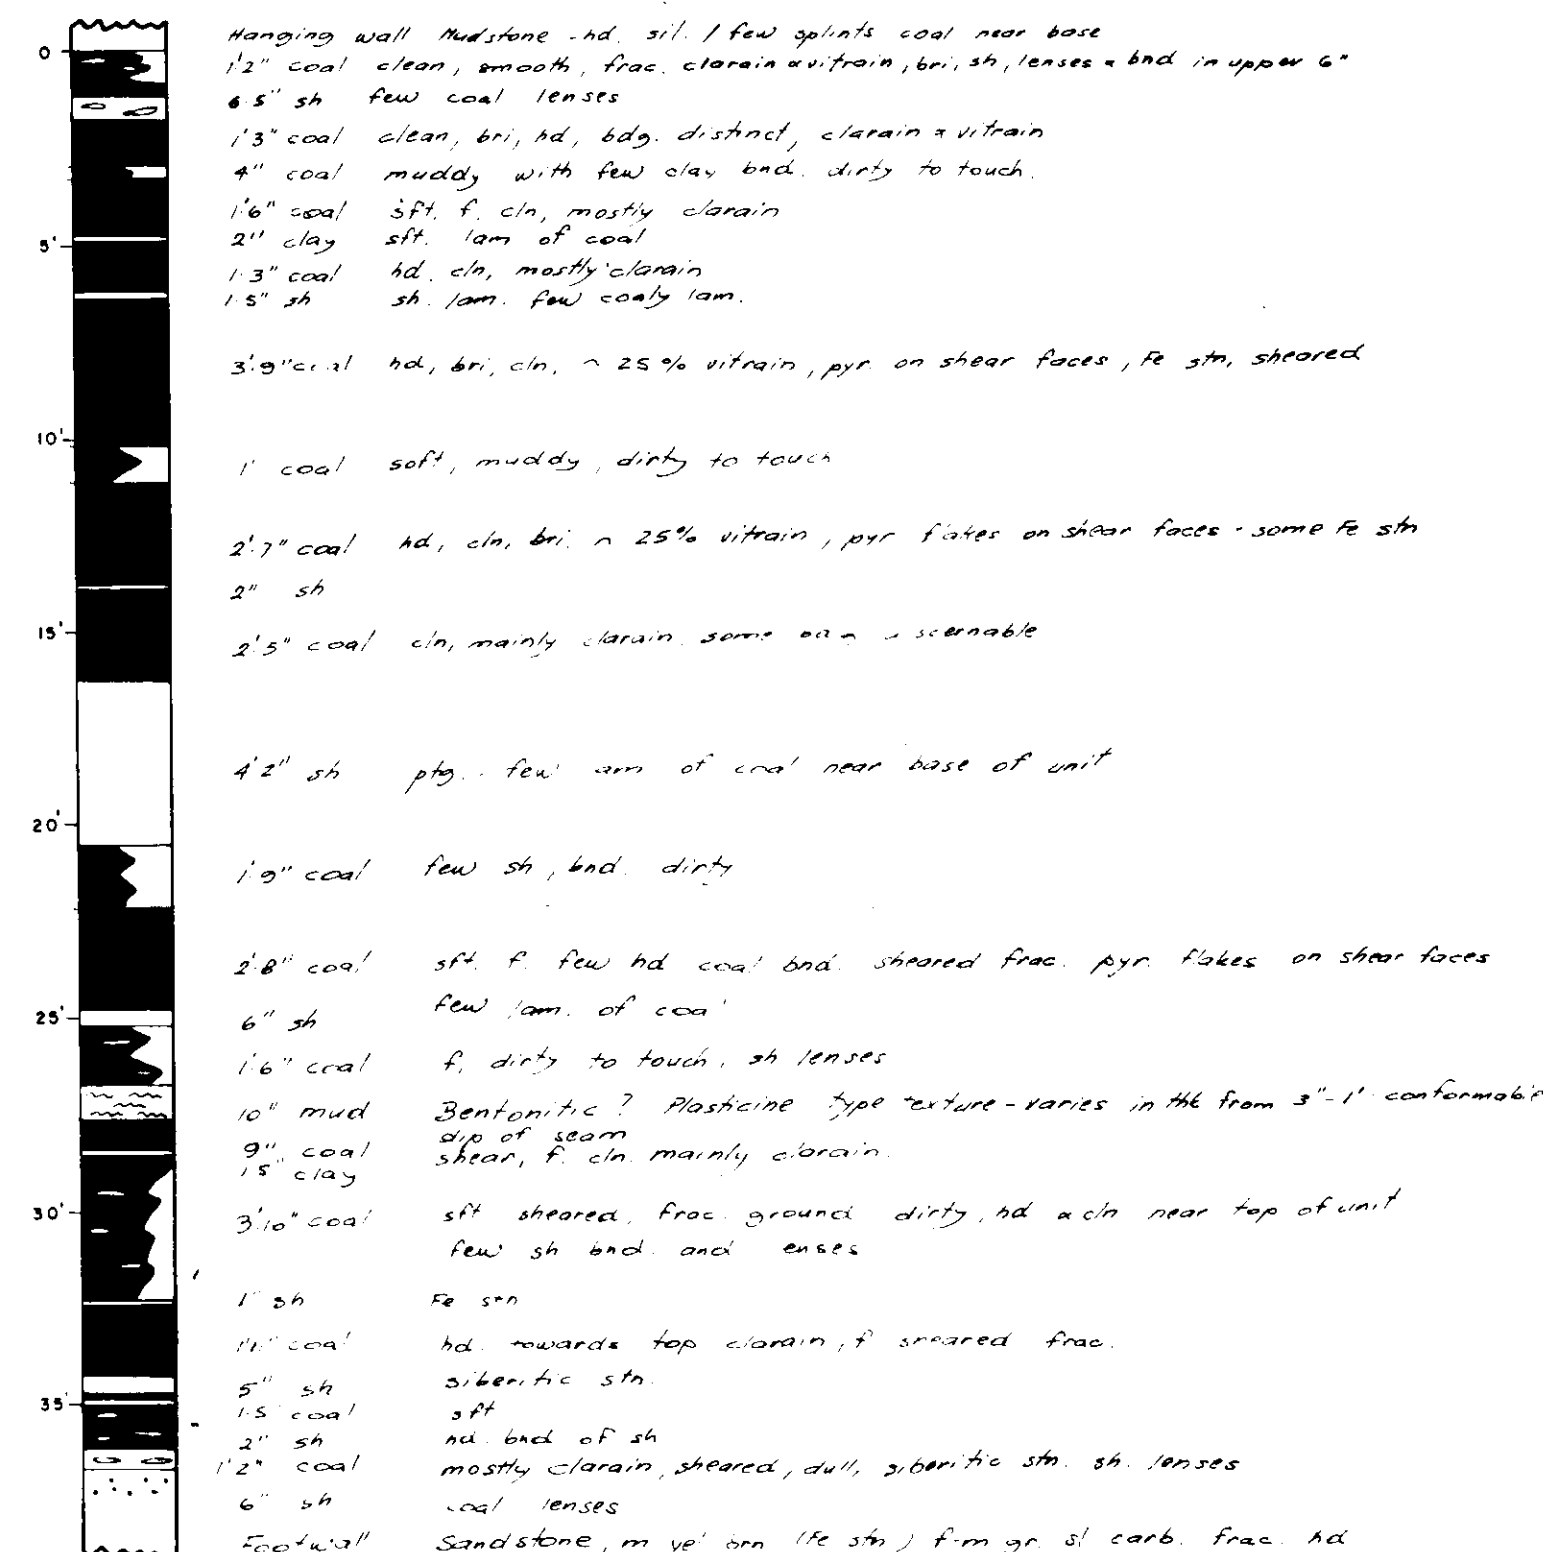 Hanging wall Mudstone - hd. sil. / few splints coal near base
0
1'2" coal clean, smooth, frac. clarain & vitrain, bri, sh, lenses & bnd in upper 6"
6.5" sh few coal lenses
1'3" coal clean, bri, hd, bdg. distinct, clarain & vitrain
4" coal muddy with few clay bnd. dirty to touch.
1'6" coal sft. f. cln, mostly clarain
2" clay sft. lam of coal
5'
1'3" coal hd. cln, mostly clarain
1.5" sh sh. lam. few coaly lam.
3'9" coal hd, bri, cln, ~ 25% vitrain, pyr. on shear faces, Fe stn, sheared
10'
1' coal soft, muddy, dirty to touch
2'7" coal hd, cln, bri. ~ 25% vitrain, pyr flakes on shear faces - some Fe stn
2" sh
15'
2'5" coal cln, mainly clarain some
4'2" sh ptg. few of coal near base of unit
20'
1'9" coal few sh, bnd. dirty
2'8" coal sft. f. few hd coal bnd. sheared frac. pyr. flakes on shear faces
25'
6" sh few lam. of coal
1'6" coal f. dirty to touch, sh lenses
10" mud Bentonitic? Plasticine type texture - varies in thk from 3"-1' conformable
dip of seam
9" coal shear, f. cln. mainly clarain.
1.5" clay
30'
3'10" coal sft sheared, frac. ground dirty, hd & cln near top of unit
few sh bnd. and lenses
1" sh Fe stn
coal hd. towards top clarain, f sheared frac.
5" sh siberitic stn.
35'
1.5 coal sft
2" sh hd. bnd of sh
1'2" coal mostly clarain, sheared, dull, siberitic stn. sh. lenses
6" sh coal lenses
Footwall Sandstone, m yel brn (Fe stn) f-m gr. sl carb. frac. hd